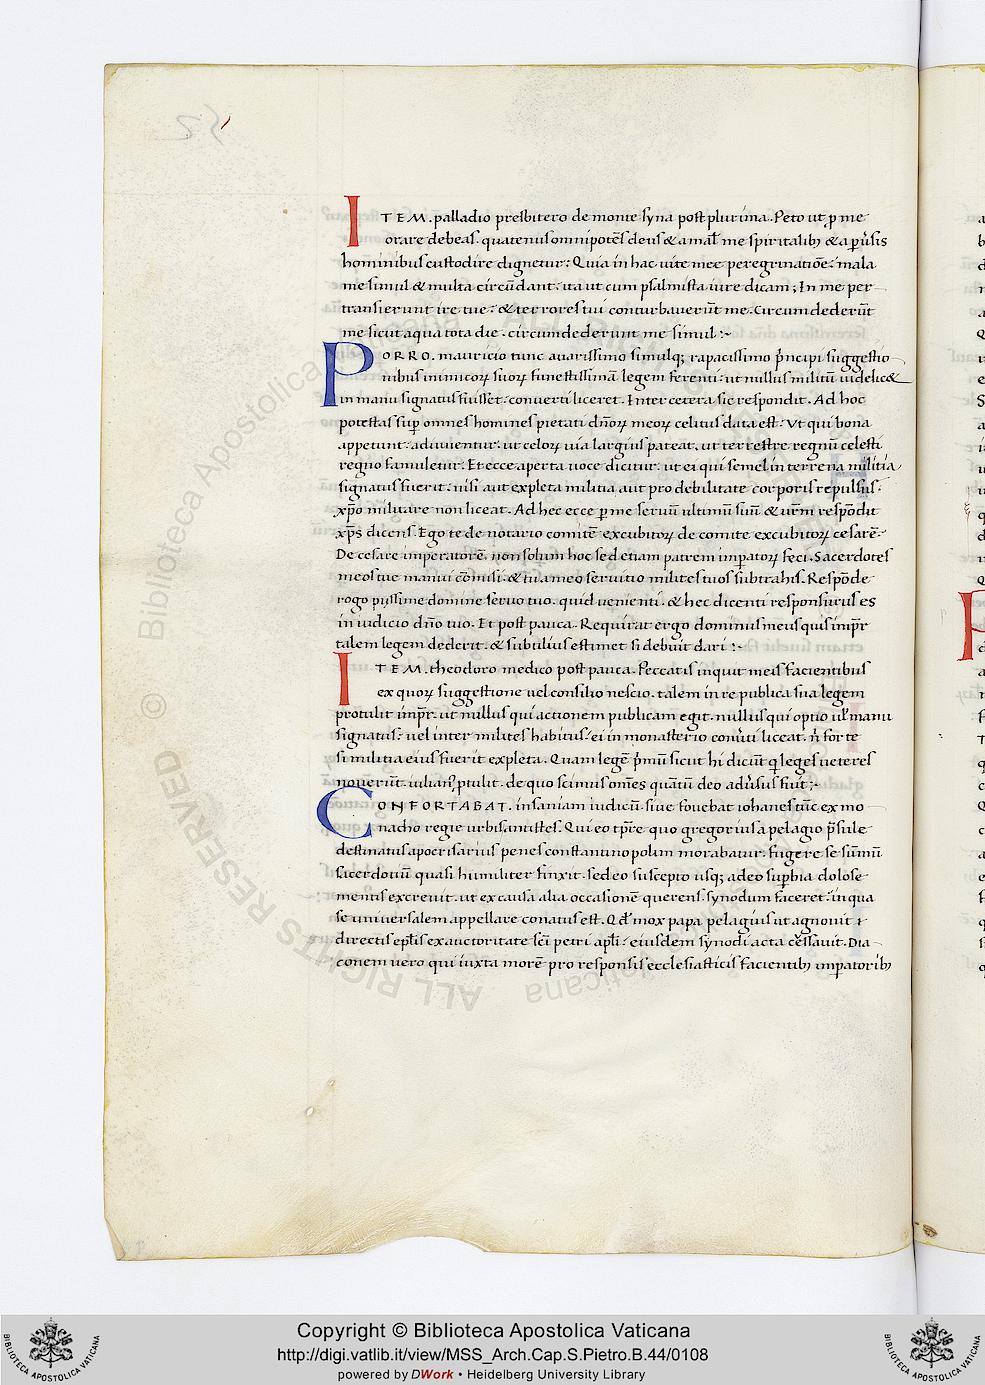 ITEM. palladio presbitero de monte syna post plurima. Peto ut p̱ me
orare debeas. quatenus omnipotēs deus & a mal' me spiritalib; & a p̱u̇sis
hominibus custodire dignetur: Quia in hac vite mee peregrinatiōe: mala
me simul & multa circūdant: ita ut cum psalmista iure dicam; In me per
transierunt ire tue: & terrores tui conturbaverūt me. Circumdederūt
me sicut aqua tota die: circumdederunt me simul:~
PORRO. mauricio tunc avarissimo simulq; rapacissimo p̄ncipi suggestio
nibus inimicoꝝ suoꝝ funestissimā legem ferenti: ut nullus militū videlic&
in manu signatus fuisset: converti liceret. Inter cetera sic respondit. Ad hoc
potestas sup̱ omnes homines pietati dn̄oꝝ meoꝝ celitus data est: Ut qui bona
appetunt: adiuventur: ut celoꝝ via largius pateat. ut terrestre regnū celesti
regno famuletur. Et ecce aperta voce dicitur: ut ei qui semel in terrena militia
signatus fuerit: nisi aut expleta militia. aut pro debilitate corporis repulsus:
xp̄o militare non liceat. Ad hec ecce p̱ me servū ultimū suū & vr̄m respōdit
xp̄s dicens. Ego te de notario comitē excubitoꝝ de comite excubitoꝝ cesarē:
De cesare imperatorē. non solum hoc sed etiam patrem imp̱atoꝝ feci. Sacerdotes
meos tue manui cōmisi. & tu a meo servitio milites tuos subtrahis. Respōde
rogo piissime domine servo tuo. quid venienti. & hec dicenti responsurus es
in iudicio dn̄o tuo. Et post pauca. Requirat ergo dominus meus quis imp̄r
talem legem dederit. & subtilius estimet si debuit dari:~
ITEM. theodoro medico post pauca. Peccatis inquit meis facientibus
ex quoꝝ suggestione vel consilio nescio. talem in re publica sua legem
protulit imp̄r. ut nullus qui actionem publicam egit. nullus qui optio vl' manu
signatus: vel inter milites habitus: ei in monasterio conv̇ti liceat. n̄ forte
si militia eius fuerit expleta. Quam legē p̄mū sicut hi dicūt q̱ leges veteres
noverūt. iulianꝰ ꝓtulit. de quo scimus om̄es quātū deo adv̇sus fuit;~
CONFORTABAT. insaniam iudicū sive fovebat iohanes tūc ex mo
nacho regie urbis antistes. Qui eo tp̄re quo gregorius a pelagio p̄sule
destinatus apocrisarius penes constantinopolim morabatur. fugere se sūmū
sacerdotiū quasi humiliter finxit. sed eo suscepto usq; adeo sup̱bia dolose
mentis excrevit. ut ex causa alia occasionē querens. synodum faceret: in qua
se universalem appellare conatus est. Qd̄ mox papa pelagius ut agnovit:
directis ep̄lis ex auctoritate sc̄i petri ap̄li: eiusdem synodi acta cēssavit. Dia
conem vero qui iuxta morē pro responsis ecclesiasticis facientib; imp̱atorib;
Copyright © Biblioteca Apostolica Vaticana
http://digi.vatlib.it/view/MSS_Arch.Cap.S.Pietro.B.44/0108
powered by DWork • Heidelberg University Library